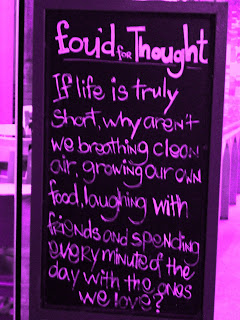 food for Thought
If life is truly
short, why aren't
we breathing clean
air, growing our own
food, laughing with
friends and spending
every minute of the
day with the ones
we love?